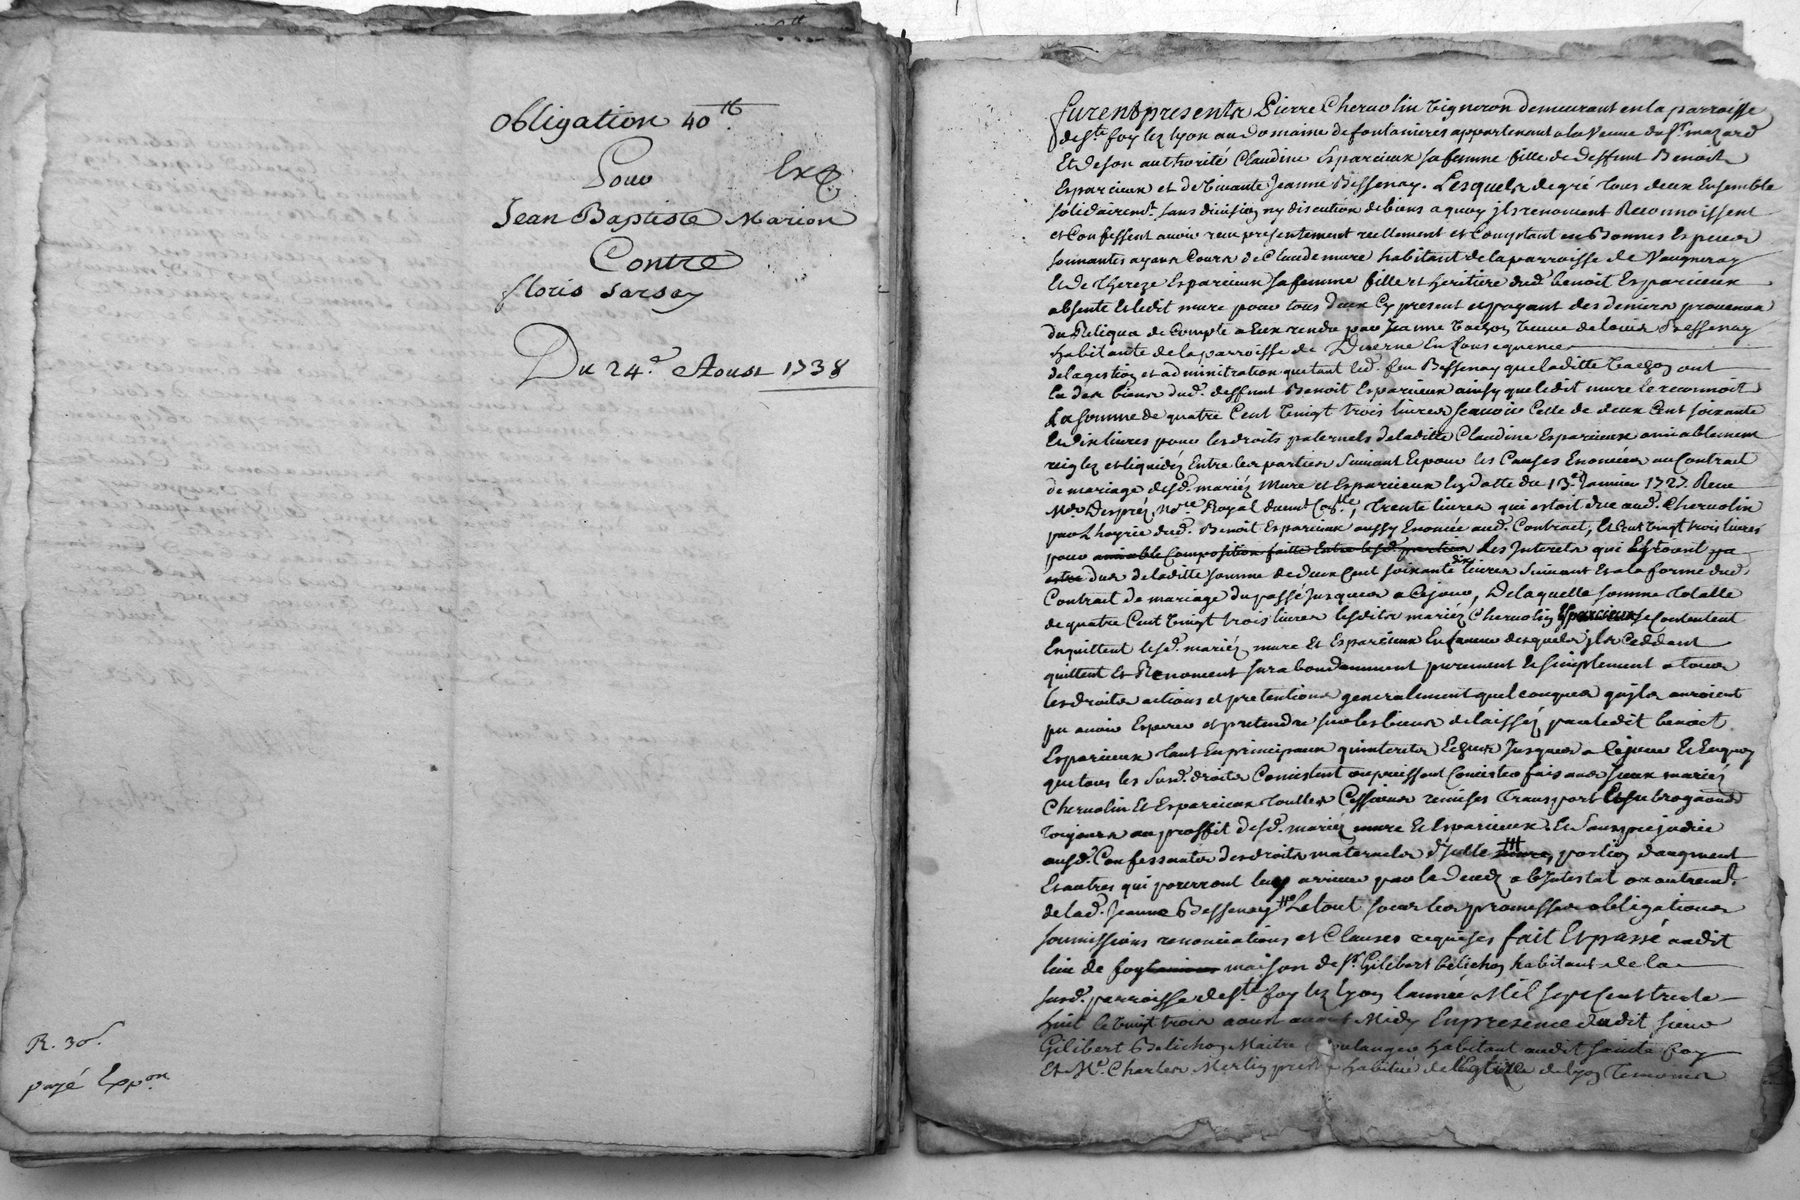 Obligation 40ᵗᵗ
Pour
Exp.
Jean Baptiste Marion
Contre
floris Sarsay
Du 24.ᵉ Aoust 1738
R. 30ˢ.
payé Expᵒⁿ
furent presents Pierre Chervolin Vigneron demeurant en la parroisse
de Sᵗᵉ foy lez Lyon au Domaine de fontanieres appartenant a la Veuve du Sʳ mazard
Et de son authorité Claudine Esparcieux sa femme fille de deffunt Benoit
Esparcieux et de Vivante Jeanne Bessenay. Lesquels de gré tous deux Ensemble
solidairemᵗ. sans division ny discution de biens a quoy jls renoncent Reconnoissent
et Confessent avoir receu presentement reellement et Comptant en Bonnes Especes
sonnantes ayans Cours de Claude mure habitant de la parroisse de Vaugneray
Et de Thereze Esparcieux sa femme fille et heritiere dud. benoit Esparcieux
absente Et ledit mure pour tous deux Cy present et payant des deniers provenus
du Reliqua de Compte a Eux rendu par Jeanne Veuve de Louis Bessenay
habitante de la parroisse de Duerne En Consequence
de la gestion et adminitration que tant led. feu Bessenay que laditte ont
Eu des biens dud. deffunt Benoit Esparcieux ainsy que ledit mure Le reconnoit
La somme de quatre Cent Vingt trois livres scavoir Celle de deux Cent soixante
Et dix livres pour les droits paternels de laditte Claudine Esparcieux amiablement
reiglez et liquidéz Entre les parties suivant Et pour les Causes Enoncées au Contrat
de mariage desd. mariéz Mure et Esparcieux En datte du 13ᵉ. Janvier 1727. Receu
Mᵉ Despréz Noʳᵉ Royal, Trente livres qui estoit due aud. Chervolin
par L'hoyrie dud. Benoit Esparcieux aussy Enoncée aud. Contract, Et Cent Vingt trois livres
pour amiable Composition faitte Entre lesd. parties Les Interets qui
dus de laditte somme de deux Cent soixante dix livres suivant Et a la forme dud.
Contrat de mariage du passé Jusques a Cejour, De laquelle somme totalle
de quatre Cent Vingt trois livres lesdits mariéz Chervolin Esparcieux se Contentent
En quittent lesd. mariéz mure Et Esparcieux En faveur desquels jls Ceddent
quittent Et Renoncent surabondamment purement Et simplement a tous
les droits actions et pretentions generalement quelconques qu'jls auroient
pu avoir Esperer et pretendre sur les biens delaisséz par ledit benoit
Esparcieux tant En principaux qu'interets Echeus Jusques a Cejour Et En quoy
que tous les susd. droits Consistent ou puissent Consister faisans Jceux mariéz
Chervolin Et Esparcieux touttes Cessions remises Transport Et subrogations
Toujours au proffit desd. mariéz mure Et Esparcieux, Et sans prejudice
ausd. Confessants des droits maternels portion daugment
Et autres qui pourront leur arriver par le Decedz ab Intestat ou autremᵗ.
de lad. Jeanne Bessenay Le tout sous les promesses obligations
soumissions renonciations et Clauses requises fait Et passé audit
lieu de foy maison de Sʳ. Gilibert Belichon habitant de la
susd. parroisse de Sᵗᵉ. foy lez Lyon l'année Mil sept cent trente
huit le Vingt trois aoust avant Midy En presence dudit sieur
Gilibert Belichon Maitre Boulanger habitant audit sainte foy
Et Mᵉ. Charles Merlin habitué de L'Eglise de Lyon Temoins